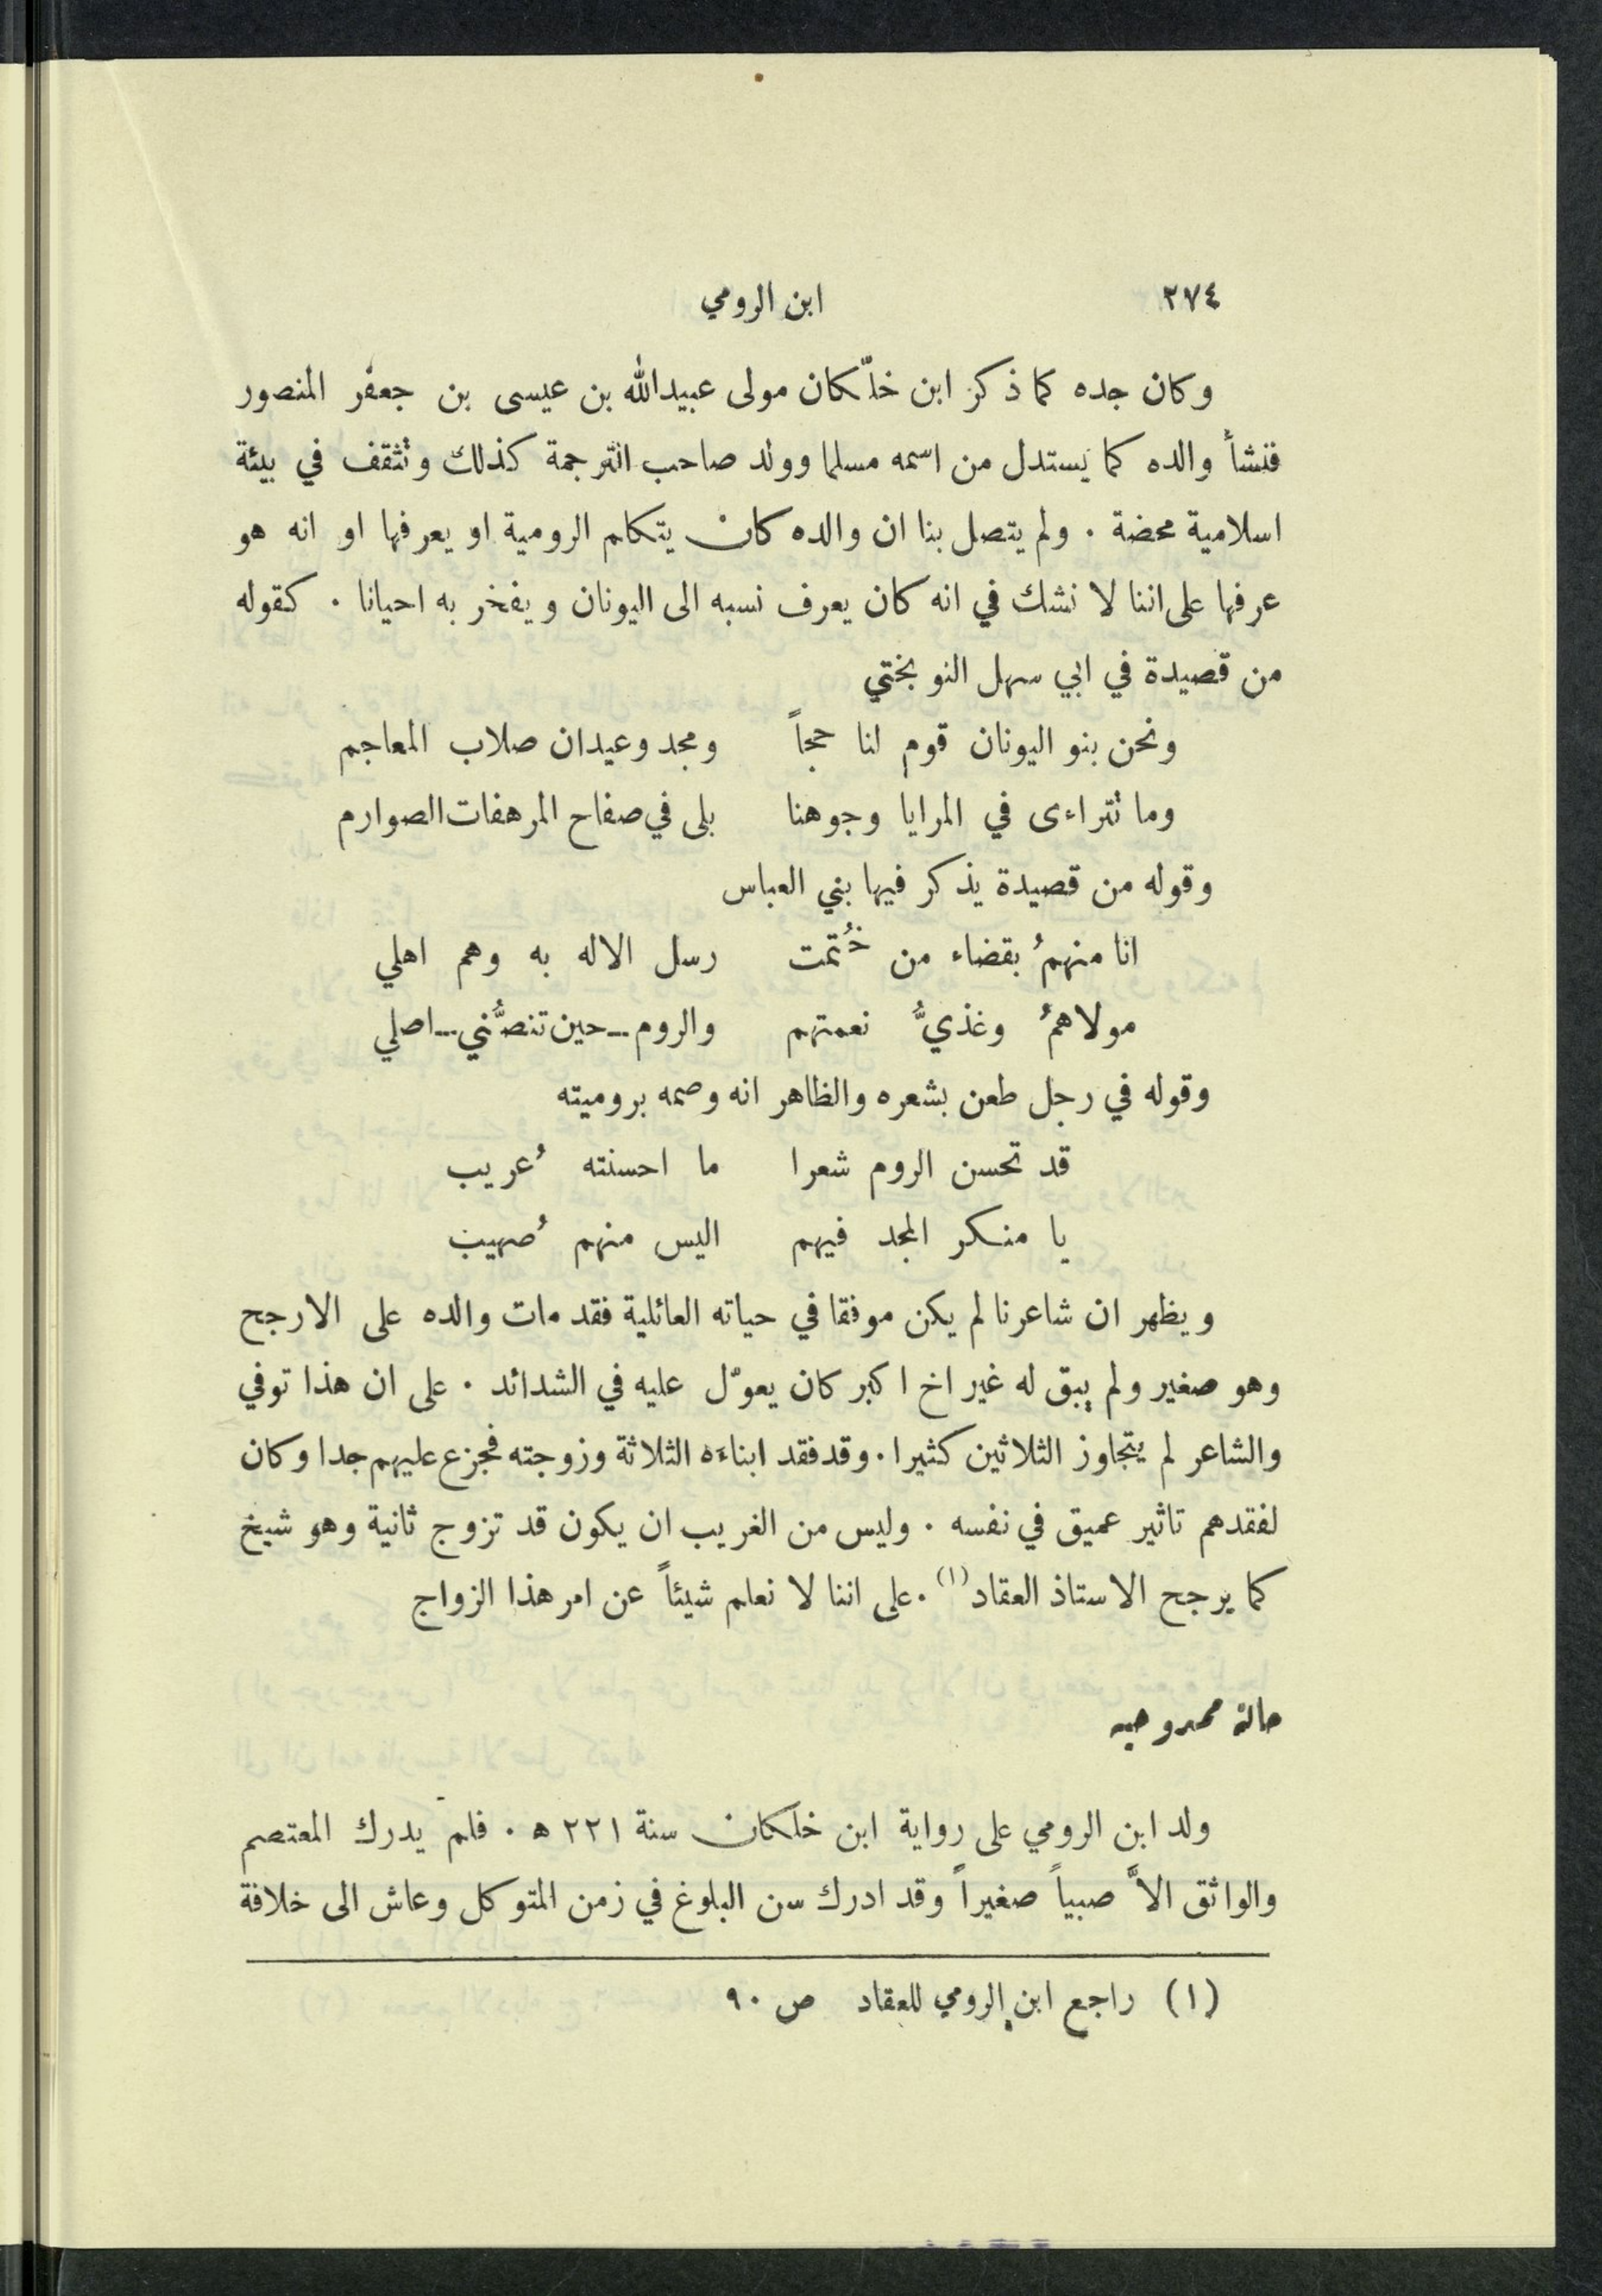 ٢٧٤ ابن الرومي
وكان جده كما ذكر ابن خلّكان مولى عبيدالله بن عيسى بن جعفر المنصور
فنشأ والده كما يستدل من اسمه مسلما وولد صاحب الترجمة كذلك وتثقف في بيئة
اسلامية محضة . ولم يتصل بنا ان والده كان يتكلم الرومية او يعرفها او انه هو
عرفها على اننا لا نشك في انه كان يعرف نسبه الى اليونان ويفخر به احيانا . كقوله
من قصيدة في ابي سهل النوبختي
ونحن بنو اليونان قوم لنا حجاً ومجد وعيدان صلاب المعاجم
وما تتراءى في المرايا وجوهنا بلى في صفاح المرهفات الصوارم
وقوله من قصيدة يذكر فيها بني العباس
انا منهمُ بقضاء من خُتمت رسل الاله به وهم اهلي
مولاهمُ وغذيُّ نعمتهم والروم ــ حين تنصُّني ــ اصلي
وقوله في رجل طعن بشعره والظاهر انه وصمه بروميته
قد تحسن الروم شعرا ما احسنته عُريب
يا منكر المجد فيهم اليس منهم صُهيب
ويظهر ان شاعرنا لم يكن موفقا في حياته العائلية فقد مات والده على الارجح
وهو صغير ولم يبق له غير اخ اكبر كان يعوّل عليه في الشدائد . على ان هذا توفي
والشاعر لم يتجاوز الثلاثين كثيرا . وقد فقد ابناءه الثلاثة وزوجته فجزع عليهم جدا وكان
لفقدهم تاثير عميق في نفسه . وليس من الغريب ان يكون قد تزوج ثانية وهو شيخ
كما يرجح الاستاذ العقاد (١) . على اننا لا نعلم شيئاً عن امر هذا الزواج
حالة ممدوحيه
ولد ابن الرومي على رواية ابن خلكان سنة ٢٢١ ه . فلم يدرك المعتصم
والواثق الاَّ صبياً صغيراً وقد ادرك سن البلوغ في زمن المتوكل وعاش الى خلافة
(١) راجع ابن الرومي للعقاد ص ٩٠